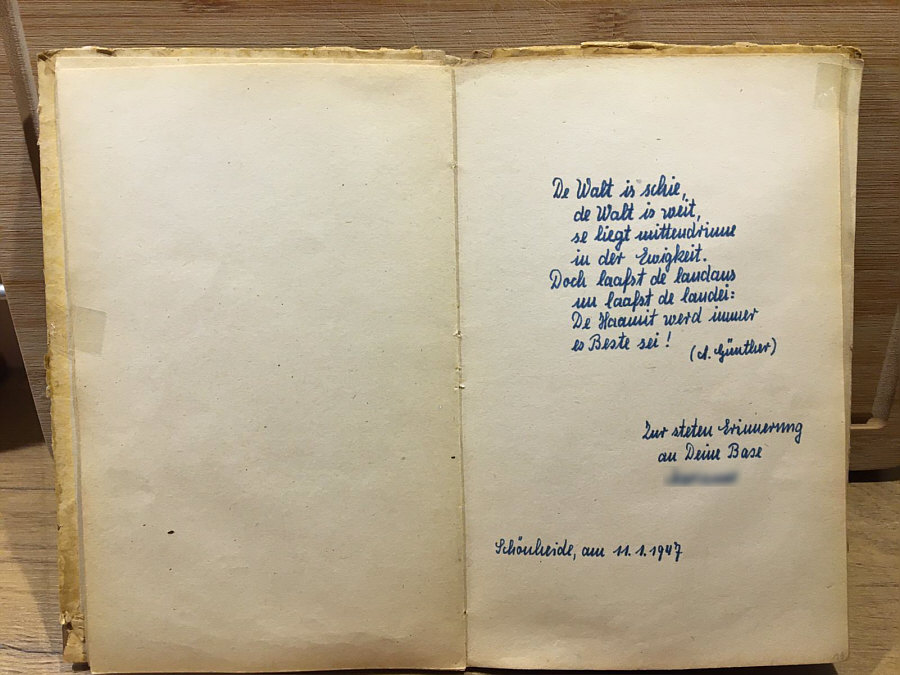 De Walt is schie,
de Walt is weit,
se liegt mittendrinne
in der Ewigkeit.
Doch laafst de landaus
un laafst de landei:
De Haamit werd immer
es Beste sei!
(A. Günther)
Zur steten Erinnerung
an Deine Base
Schönheide, am 11.1.1947